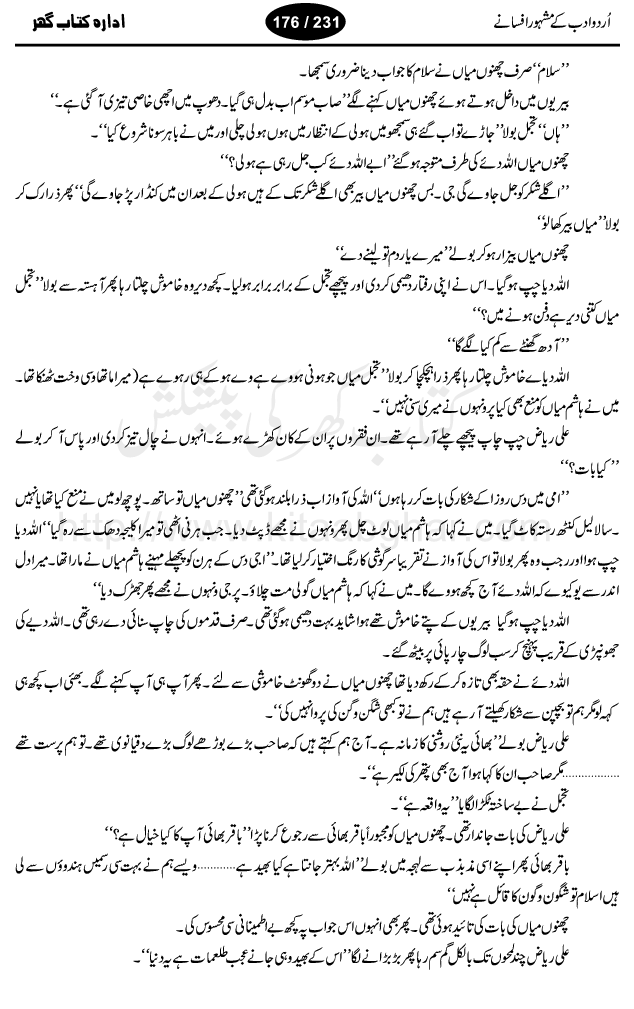 اُردو ادب کے مشہور افسانے 176 / 231 ادارہ کتاب گھر
’’سلام‘‘ صرف چھنوں میاں نے سلام کا جواب دینا ضروری سمجھا۔
بیریوں میں داخل ہوتے ہوئے چھنوں میاں کہنے لگے ’’صاب موسم اب بدل ہی گیا۔ دھوپ میں اچھی خاصی تیزی آ گئی ہے۔‘‘
’’ہاں‘‘ تجمل بولا ’’جاڑے تو اب گئے ہی سمجھو میں ہولی کے انتظار میں ہوں ہولی جلی اور میں نے باہر سونا شروع کیا‘‘۔
چھنوں میاں اللہ دئے کی طرف متوجہ ہو گئے ’’ابے اللہ دئے کب جل رہی ہے ہولی؟‘‘
’’اگلے شکر کو جل جاوے گی جی۔ بس چھنوں میاں بیر بھی اگلے شکر تک کے ہیں ہولی کے بعد ان میں کنڈار پڑ جاوے گی‘‘ پھر ذرا رک کر
بولا ’’میاں بیر کھا لو‘‘
چھنوں میاں بیزار ہو کر بولے ’’میرے یار دم تو لینے دے‘‘
اللہ دیا چپ ہو گیا۔ اس نے اپنی رفتار دھیمی کر دی اور پیچھے تجمل کے برابر برابر ہو لیا۔ کچھ دیر وہ خاموش چلتا رہا پھر آہستہ سے بولا ’’تجمل
میاں کتنی دیر ہے دفن ہونے میں؟‘‘
’’آدھ گھنٹے سے کم کیا لگے گا‘‘
اللہ دیا خاموش چلتا رہا پھر ذرا ہچکچا کر بولا ’’تجمل میاں جو ہونی ہووے ہے وے ہو کے ہی رہوے ہے (میرا ماتھا وسی وخت ٹھنکا تھا۔
میں نے ہاشم میاں کو منع بھی کیا پر ونہوں نے میری سنی نہیں‘‘۔
علی ریاض چپ چاپ پیچھے چلے آ رہے تھے۔ ان فقروں پر ان کے کان کھڑے ہوئے۔ انہوں نے چال تیز کر دی اور پاس آ کر بولے
’’کیا بات؟‘‘
’’اجی میں دس روز کے شکار کی بات کر رہا ہوں‘‘ اللہ کی آواز اب ذرا بلند ہو گئی تھی ’’چھنوں میاں تو ساتھ۔ پوچھ لو میں نے منع کیا تھا یا نہیں
۔ سالا لیل کنٹھ رستہ کاٹ گیا۔ میں نے کہا کہ ہاشم میاں لوٹ چل پھر ونہوں نے مجھے ڈپٹ دیا۔ جب ہرنی اٹھی تو میرا کلیجہ دھک سے رہ گیا‘‘ اللہ دیا
چپ ہوا اور جب وہ پھر بولا تو اس کی آواز نے تقریباً سرگوشی کا رنگ اختیار کر لیا تھا۔ ’’اجی دس کے ہرن کو پچھلے مہینے ہاشم میاں نے مارا تھا۔ میرا دل
اندر سے یو کیوے کہ اللہ دئے آج کچھ ہووے گا۔ میں نے کہا کہ ہاشم میاں گولی مت چلاؤ۔ پر جی ونہوں نے مجھے جھڑک دیا‘‘
اللہ دیا چپ ہو گیا بیریوں کے پتے خاموش تھے ہوا شاید بہت دھیمی ہو گئی تھی۔ صرف قدموں کی چاپ سنائی دے رہی تھی۔ اللہ دیے کی
جھونپڑی کے قریب پہنچ کر سب لوگ چارپائی پر بیٹھ گئے۔
اللہ دئے نے حقہ بھی تازہ کر کے رکھ دیا تھا چھنوں میاں نے دو گھونٹ خاموشی سے لئے۔ پھر آپ ہی آپ کہنے لگے۔ بھئی اب کچھ ہی
کہہ لو مگر ہم تو بچپن سے شکار کھیلتے آ رہے ہیں ہم نے تو کبھی شگن وگن کی پروا نہیں کی‘‘۔
علی ریاض بولے ’’بھائی یہ نئی روشنی کا زمانہ ہے۔ آج ہم کہتے ہیں کہ صاحب بڑے بوڑھے لوگ بڑے دقیانوی تھے۔ تو ہم پرست تھے
.................مگر صاحب ان کا کہا ہوا آج بھی پتھر کی لکیر ہے‘‘۔
تجمل نے بے ساختہ ٹکڑا لگایا ’’یہ واقعہ ہے‘‘۔
علی ریاض کی بات جاندار تھی۔ چھنوں میاں کو مجبوراً باقر بھائی سے رجوع کرنا پڑا ’’باقر بھائی آپ کا کیا خیال ہے؟‘‘
باقر بھائی پھر اپنے اسی مذبذب سے لہجہ میں بولے ’’اللہ بہتر جانتا ہے کیا بھید ہے............ویسے ہم نے بہت سی رسمیں ہندوؤں سے لی
ہیں اسلام تو شگون وگون کا قائل ہے نہیں‘‘
چھنوں میاں کی بات کی تائید ہوئی تھی۔ پھر بھی انہوں اس جواب پہ کچھ بے اطمینانی سی محسوس کی۔
علی ریاض چند لمحوں تک بالکل گم سم رہا پھر بڑبڑانے لگا ’’اس کے بھید وہی جانے عجب طلعمات ہے یہ دنیا‘‘۔
کتاب گھر کی پیشکش
http://www.kitaabghar.com